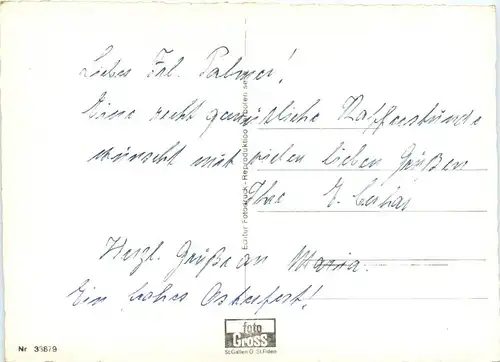 Liebes Frl. Palmer!
Eine recht gemütliche Kaffeestunde
wünscht mit vielen lieben Grüßen
Ihre E.
Herzl. Grüße an Maria.
Ein frohes Osterfest!
Echter Fotodruck - Reproduktion verboten
foto
GROSS
St. Gallen O. St. Fiden
Nr. 33879